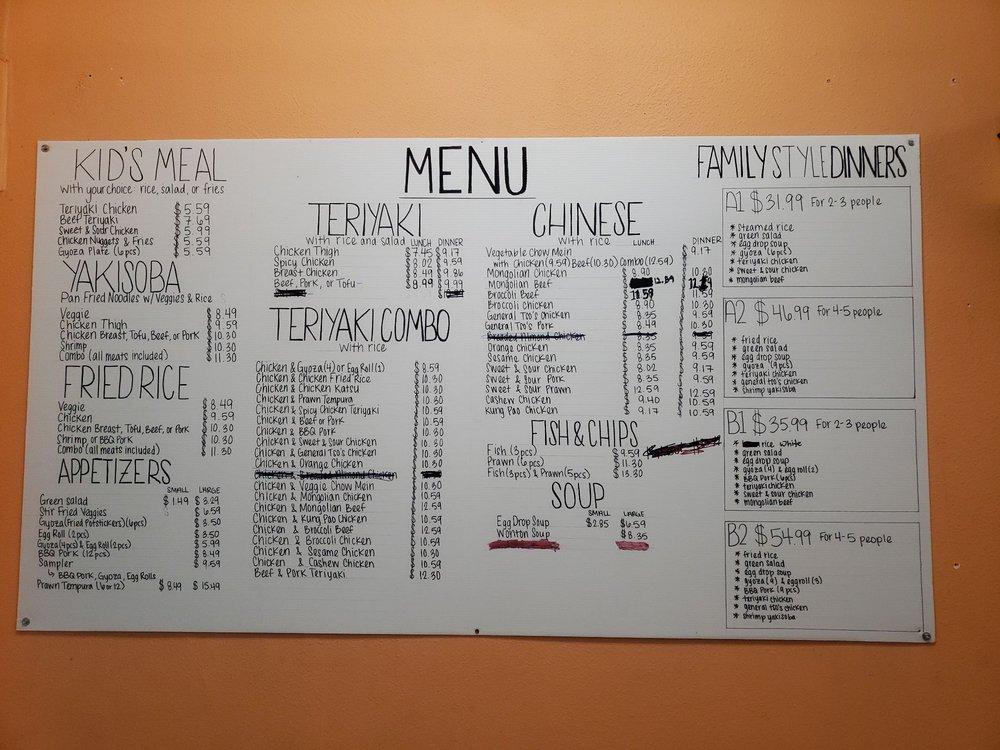 MENU
KID'S MEAL
with your choice: rice, salad, or fries
Teriyaki Chicken $5.59
Beef Teriyaki $7.69
Sweet & Sour Chicken $5.99
Chicken Nuggets & Fries $5.59
Gyoza Plate (6pcs) $5.59
YAKISOBA
Pan Fried Noodles w/ Veggies & Rice
Veggie $8.49
Chicken Thigh $9.59
Chicken Breast, Tofu, Beef, or Pork $10.30
Shrimp $10.30
Combo (all meats included) $11.30
FRIED RICE
Veggie $8.49
Chicken $9.59
Chicken Breast, Tofu, Beef, or Pork $10.30
Shrimp or BBQ Pork $10.30
Combo (all meats included) $11.30
APPETIZERS
SMALL LARGE
Green Salad $1.49 $3.29
Stir Fried Veggies $6.59
Gyoza (Fried Potstickers) (6pcs) $3.50
Egg Roll (2pcs) $3.50
Gyoza (4pcs) & Egg Roll (2pcs) $5.99
BBQ Pork (12pcs) $8.49
Sampler $9.59
↳ BBQ Pork, Gyoza, Egg Rolls
Prawn Tempura (6 or 12) $8.49 $15.49
TERIYAKI
with rice and salad LUNCH DINNER
Chicken Thigh $7.45 $9.17
Spicy Chicken $8.02 $9.59
Breast Chicken $8.49 $9.86
Beef, Pork, or Tofu $8.99 $9.99
TERIYAKI COMBO
with rice
Chicken & Gyoza (4) or Egg Roll (1) $8.59
Chicken & Chicken Fried Rice $10.30
Chicken & Chicken Katsu $10.30
Chicken & Prawn Tempura $10.30
Chicken & Spicy Chicken Teriyaki $10.59
Chicken & Beef or Pork $10.59
Chicken & BBQ Pork $10.30
Chicken & Sweet & Sour Chicken $10.30
Chicken & General Tso's Chicken $10.30
Chicken & Orange Chicken $10.30
Chicken & Breaded Almond Chicken
Chicken & Veggie Chow Mein $10.30
Chicken & Mongolian Chicken $10.59
Chicken & Mongolian Beef $12.59
Chicken & Kung Pao Chicken $10.59
Chicken & Broccoli Beef $12.59
Chicken & Broccoli Chicken $10.59
Chicken & Sesame Chicken $10.30
Chicken & Cashew Chicken $10.30
Beef & Pork Teriyaki $12.30
CHINESE
with rice LUNCH DINNER
Vegetable Chow Mein $9.17
with Chicken (9.59) Beef (10.30) Combo (12.59)
Mongolian Chicken $8.90 $10.30
Mongolian Beef 12.59
Broccoli Beef 11.59 $11.59
Broccoli Chicken $8.90 $10.30
General Tso's Chicken $8.35 $9.59
General Tso's Pork $8.49 $10.30
Breaded Almond Chicken $8.35
Orange Chicken $8.35 $9.59
Sesame Chicken $8.35 $9.59
Sweet & Sour Chicken $8.02 $9.17
Sweet & Sour Pork $8.35 $9.59
Sweet & Sour Prawn $12.59 $12.59
Cashew Chicken $9.40 $10.59
Kung Pao Chicken $9.17 $10.59
FISH & CHIPS
Fish (3pcs) $9.59
Prawn (6pcs) $11.30
Fish (3pcs) & Prawn (5pcs) $13.30
SOUP
SMALL LARGE
Egg Drop Soup $2.85 $6.59
Wonton Soup $8.35
FAMILY STYLE DINNERS
A1 $31.99 For 2-3 people
* steamed rice
* green salad
* egg drop soup
* gyoza (6pcs)
* teriyaki chicken
* sweet & sour chicken
* mongolian beef
A2 $46.99 For 4-5 people
* fried rice
* green salad
* egg drop soup
* gyoza (9pcs)
* teriyaki chicken
* general tso's chicken
* shrimp yakisoba
B1 $35.99 For 2-3 people
* rice white
* green salad
* egg drop soup
* gyoza (4) & egg roll (2)
* BBQ Pork (6pcs)
* teriyaki chicken
* sweet & sour chicken
* mongolian beef
B2 $54.99 For 4-5 people
* fried rice
* green salad
* egg drop soup
* gyoza (9) & eggroll (3)
* BBQ Pork (9 pcs)
* teriyaki chicken
* general tso's chicken
* shrimp yakisoba